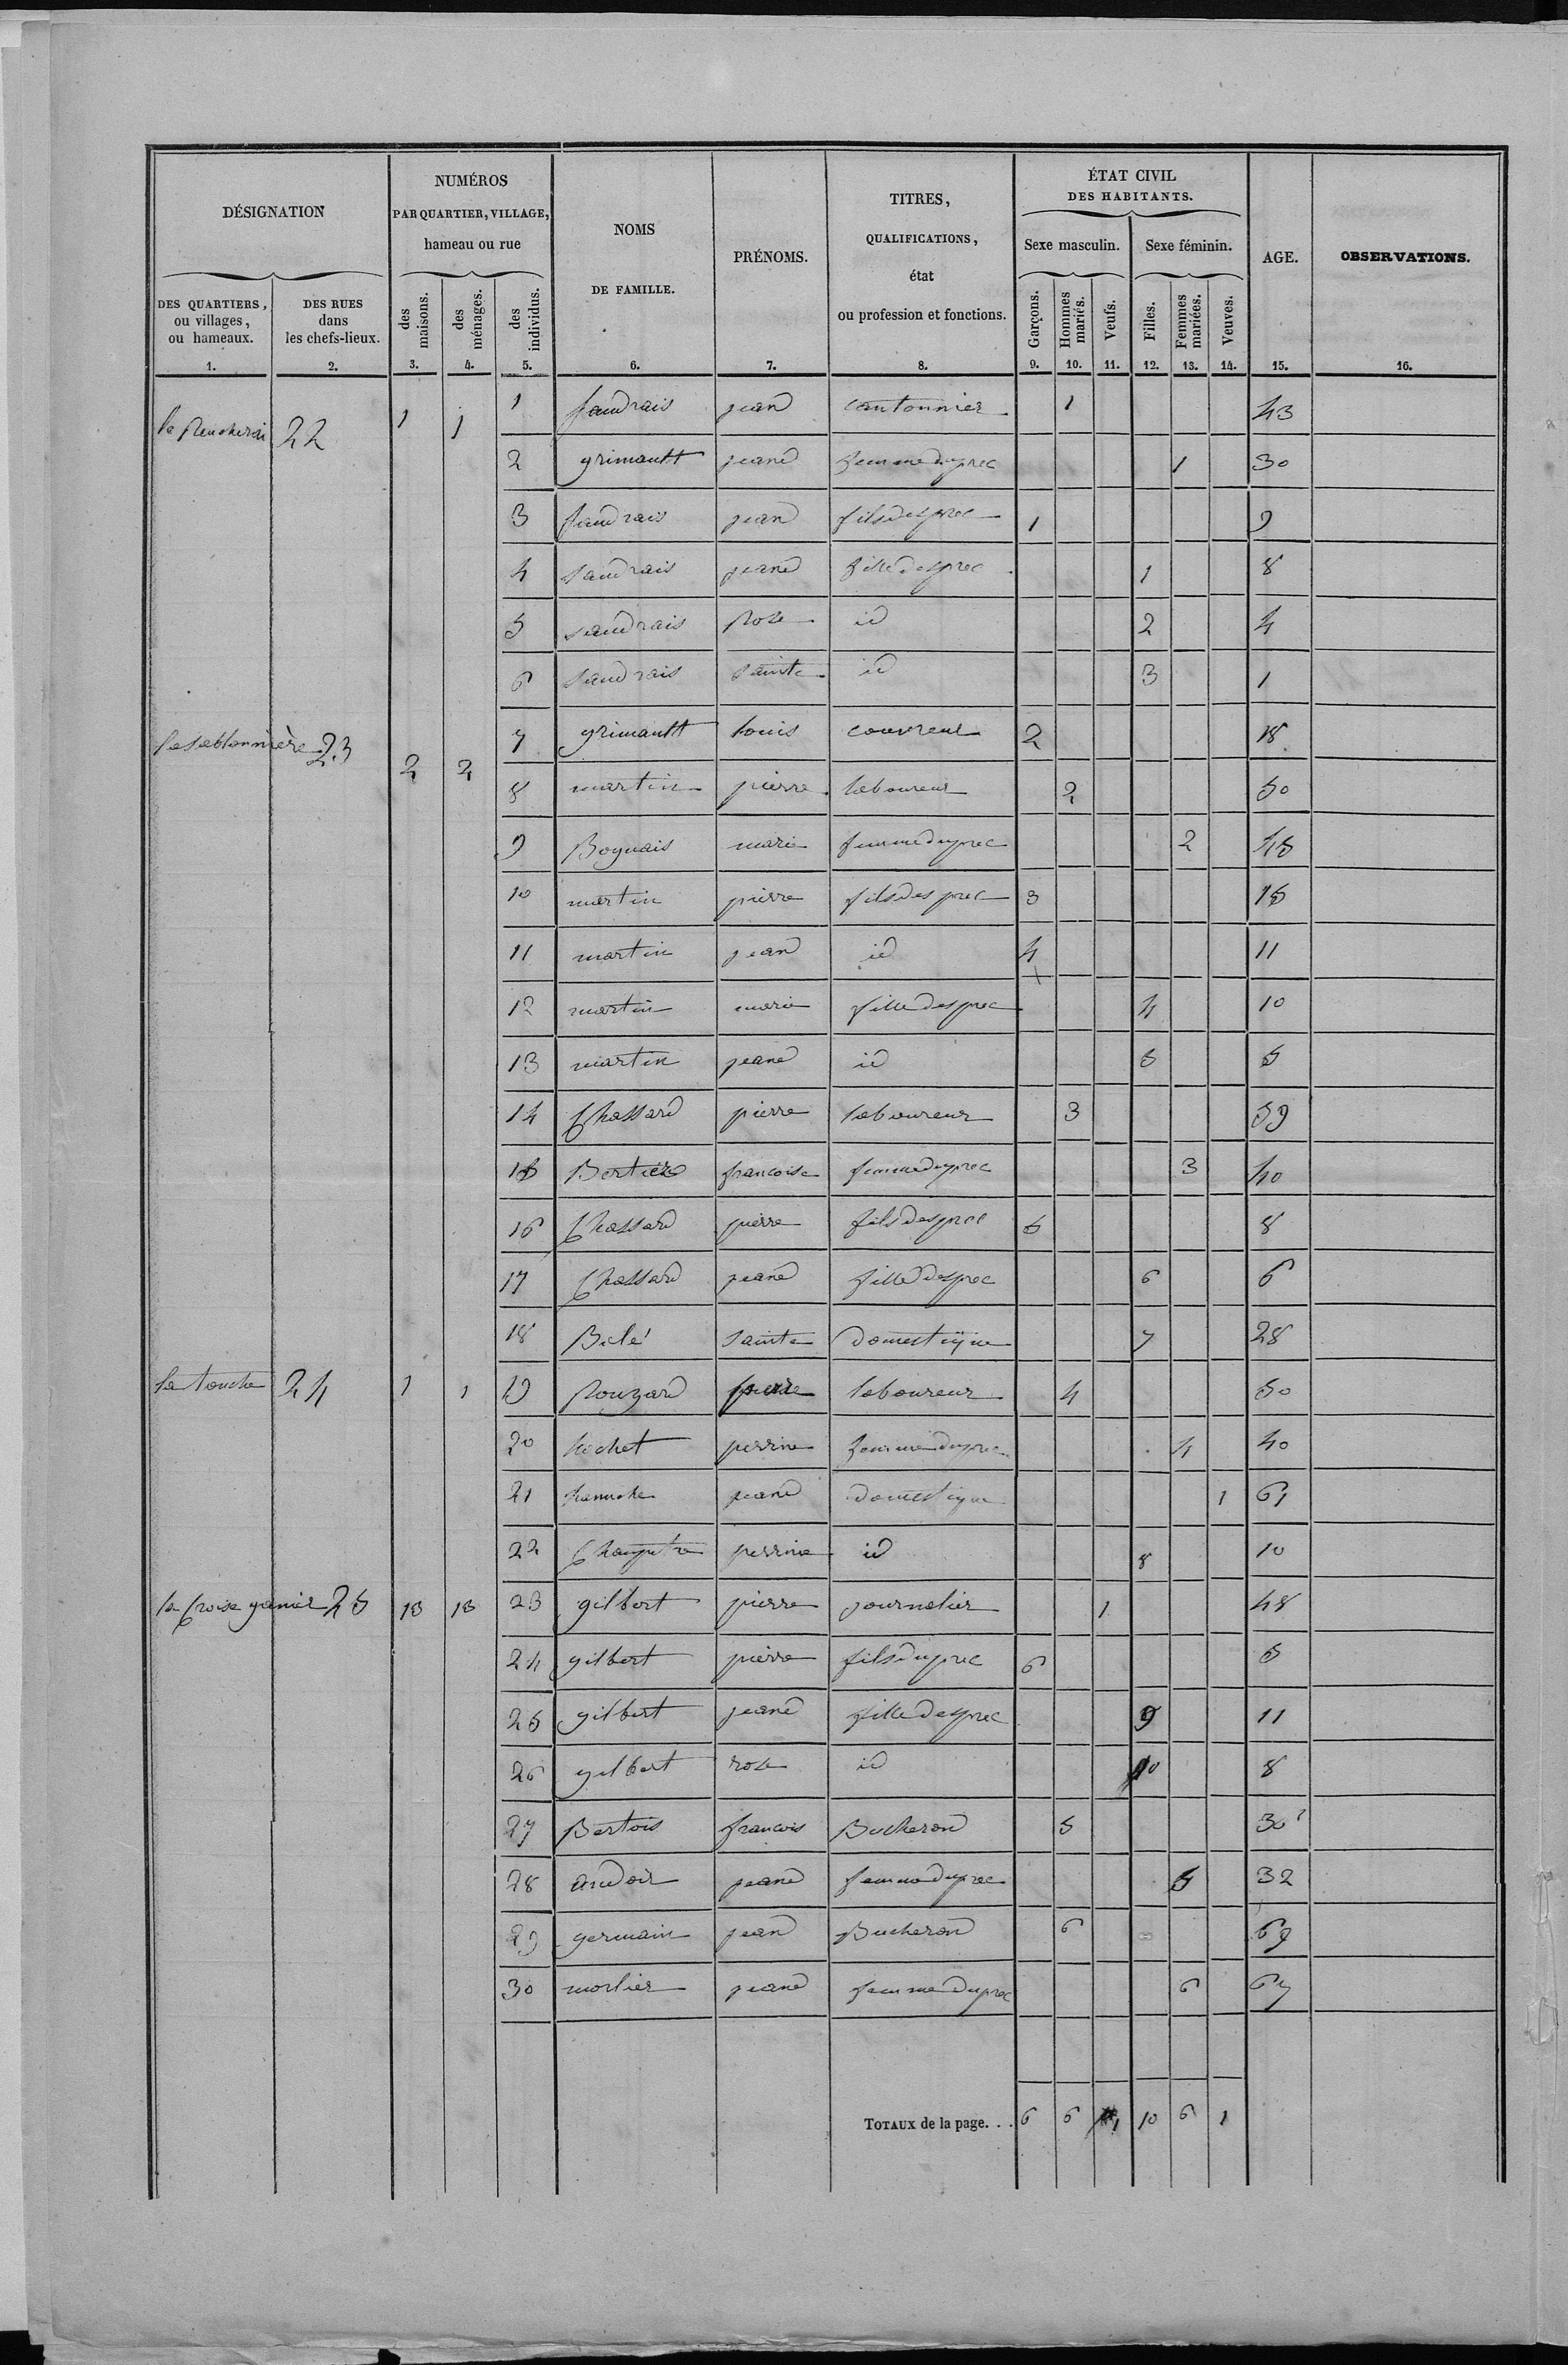 DÉSIGNATION
NUMÉROS
PAR QUARTIER, VILLAGE,
hameau ou rue
NOMS
DE FAMILLE.
PRÉNOMS.
TITRES,
QUALIFICATIONS,
état
ou profession et fonctions.
ÉTAT CIVIL
DES HABITANTS.
Sexe masculin. Sexe féminin.
AGE.
OBSERVATIONS.
DES QUARTIERS,
ou villages,
ou hameaux.
DES RUES
dans
les chefs-lieux.
des maisons.
des ménages.
des individus.
Garçons.
Hommes mariés.
Veufs.
Filles.
Femmes mariées.
Veuves.
1. 2. 3. 4. 5. 6. 7. 8. 9. 10. 11. 12. 13. 14. 15. 16.
la 22 1 1 1 jean cantonnier 1 43
2 grimault jeane femme du prec 1 30
3 jean fils des prec 1 9
4 jeane fille des prec 1 8
5 Rose id 2 4
6 sainte id 3 1
la sablonnière 23 7 grimault louis couvreur 2 18
2 2 8 martin pierre laboureur 2 50
9 Boguais marie femme du prec 2 45
10 martin pierre fils des prec 3 15
11 martin jean id 4 11
12 martin marie fille des prec 4 10
13 martin jeane id 5 5
14 Chassard pierre laboureur 3 59
15 francoise femme du prec 3 40
16 Chassard pierre fils des prec 5 8
17 Chassard jeane fille des prec 6 6
18 sainte domestique 7 28
la touche 24 1 1 19 Rouzard pierre laboureur 4 50
20 hochet perrine femme du prec 4 40
21 jeane domestique 1 61
22 perrine id 8 10
la Croise 25 23 gilbert pierre journalier 1 48
24 gilbert pierre fils du prec 6 5
25 gilbert jeane fille des prec 9 11
26 gilbert rose id 10 8
27 Bertois francois Bucheron 5 30
28 jeane femme du prec 5 32
29 germain jean Bucheron 6 69
30 morlier jeane femme du prec 6
TOTAUX de la page. . . 6 6 1 10 6 1